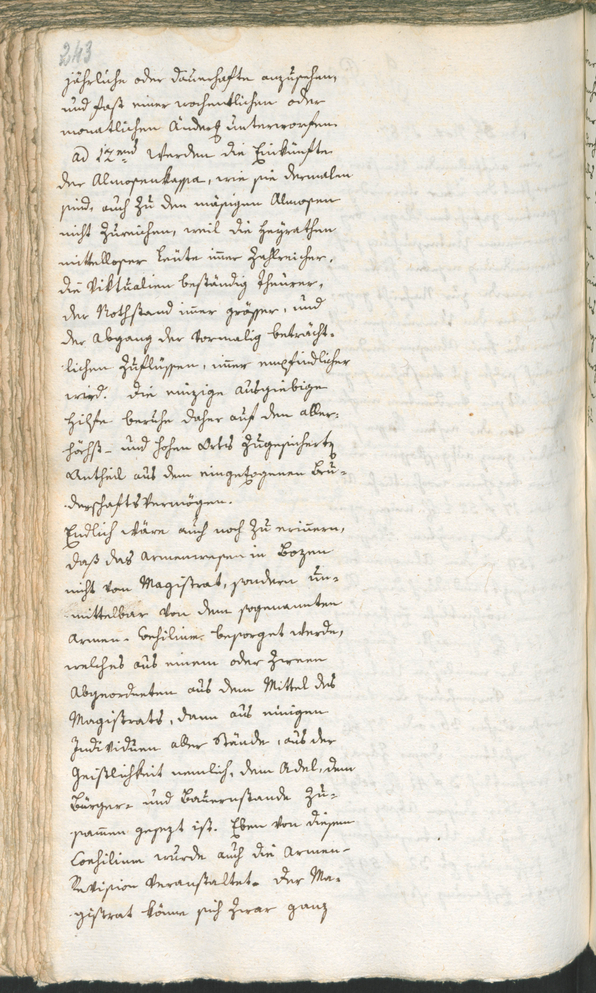 243
jährliche oder dauerhafte anzusehen,
und fast einer wochentlichen oder
monatlichen Änderg unterworfen.
ad 12mum Werden die Einkünfte
der Almosenkassa, wie sie dermalen
sind, auch zu den mäsigen Almosen
nicht zureichen, weil die Heyrathen
mittelloser Leute im̅er zahlreicher,
die Viktualien beständig theurer,
der Nothstand im̅er grösser, und
der Abgang der vormalig beträcht-
lichen Zuflüssen, im̅er empfindlicher
wird. Die einzige ausgiebige
Hilfe beruhe daher auf dem aller-
höchst- und hohen Orts zugesichert
Antheil aus dem eingezogenen Bru-
derschaftsvermögen.
Endlich wäre auch noch zu erinnern,
daß das Armenwesen in Bozen
nicht von Magistrat, sondern un-
mittelbar von dem sogenannten
Armen-Consilium besorget werde,
welches aus einem oder zween
Abgeordneten aus dem Mittel des
Magistrats, dann aus einigen
Individuen aller Stände, aus der
Geistlichkeit nemlich, dem Adel, dem
Bürger- und Bauernstande zu-
sam̅en gesezt ist. Eben von diesem
Consilium wurde auch die Armen-
Revision veranstaltet. Der Ma-
gistrat könne sich zwar ganz